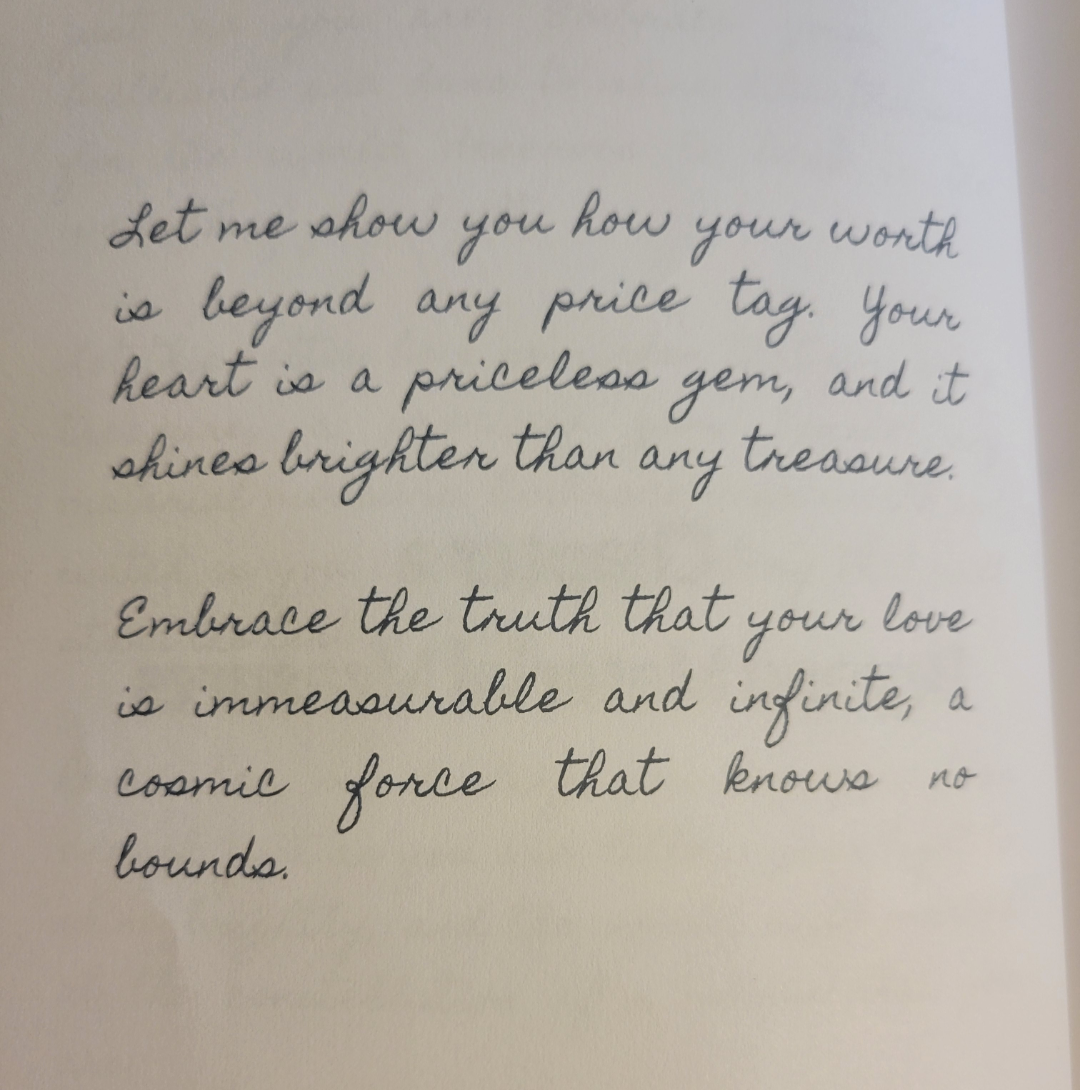 Let me show you how your worth
is beyond any price tag. Your
heart is a priceless gem, and it
shines brighter than any treasure.
Embrace the truth that your love
is immeasurable and infinite, a
cosmic force that knows no
bounds.